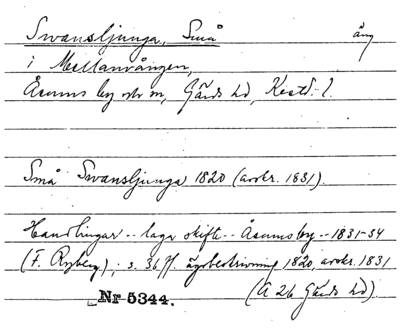 Swansljunga, Små äng
i Mellanvången,
Åsums by och sn, Gärds hd, Krist. l.
Små Swansljunga 1820 (avskr. 1831).
Handlingar -- laga skifte -- Åsums by -- 1831-34
(F. Ryberg); s. 36 ff. ägobeskrivning 1820, avskr. 1831
(A 26 Gärds hd).
Nr 5344.